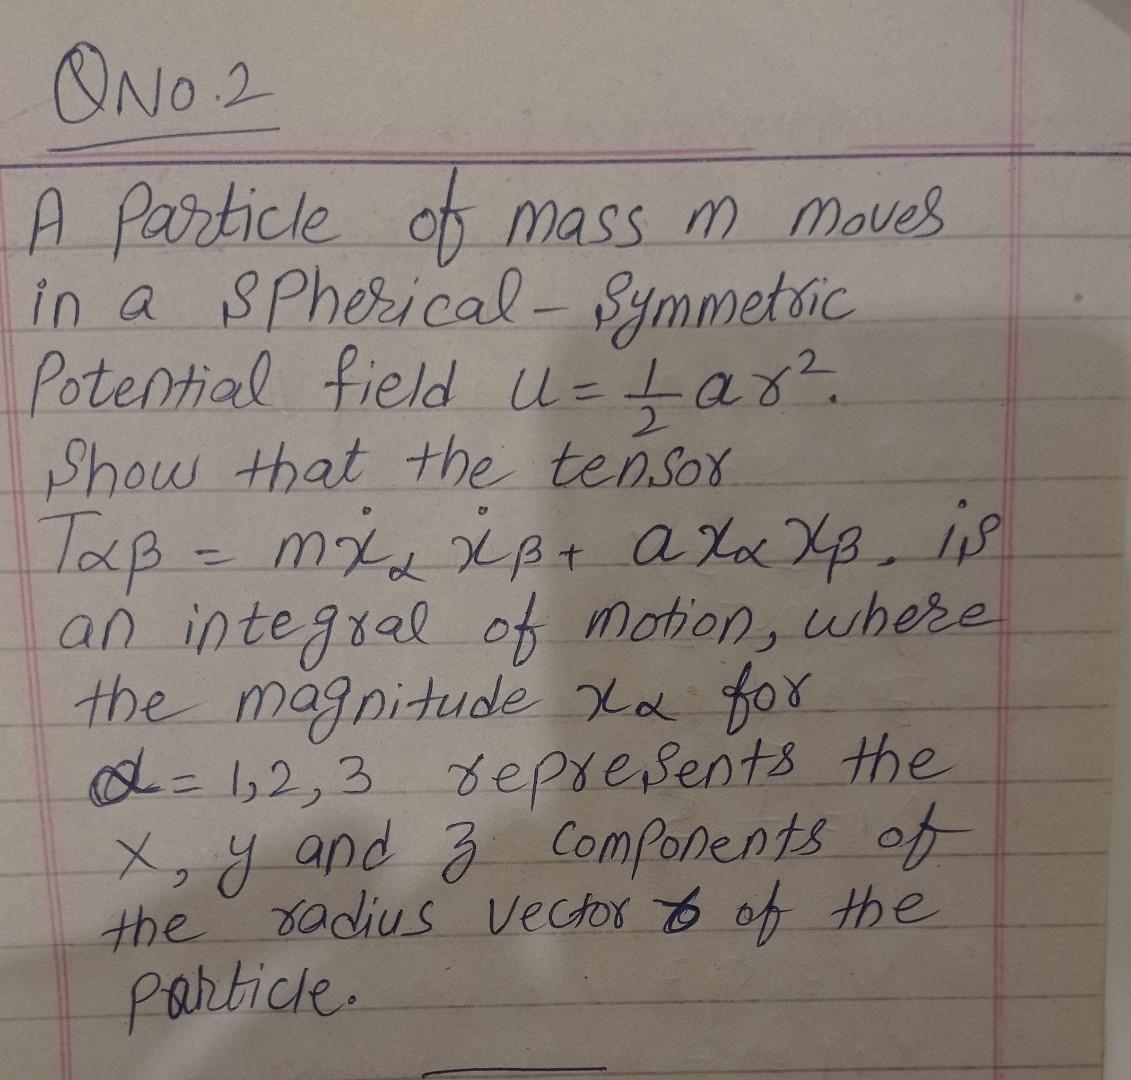 QNO.2
A Particle of mass m moves
in a Spherical-Symmetric
Potential field U = 1/2 ar².
Show that the tensor
Tαβ = mẋα ẋβ + a xα xβ. is
an integral of motion, where
the magnitude xα for
α = 1,2,3 represents the
x, y and z components of
the radius vector of the
particle.